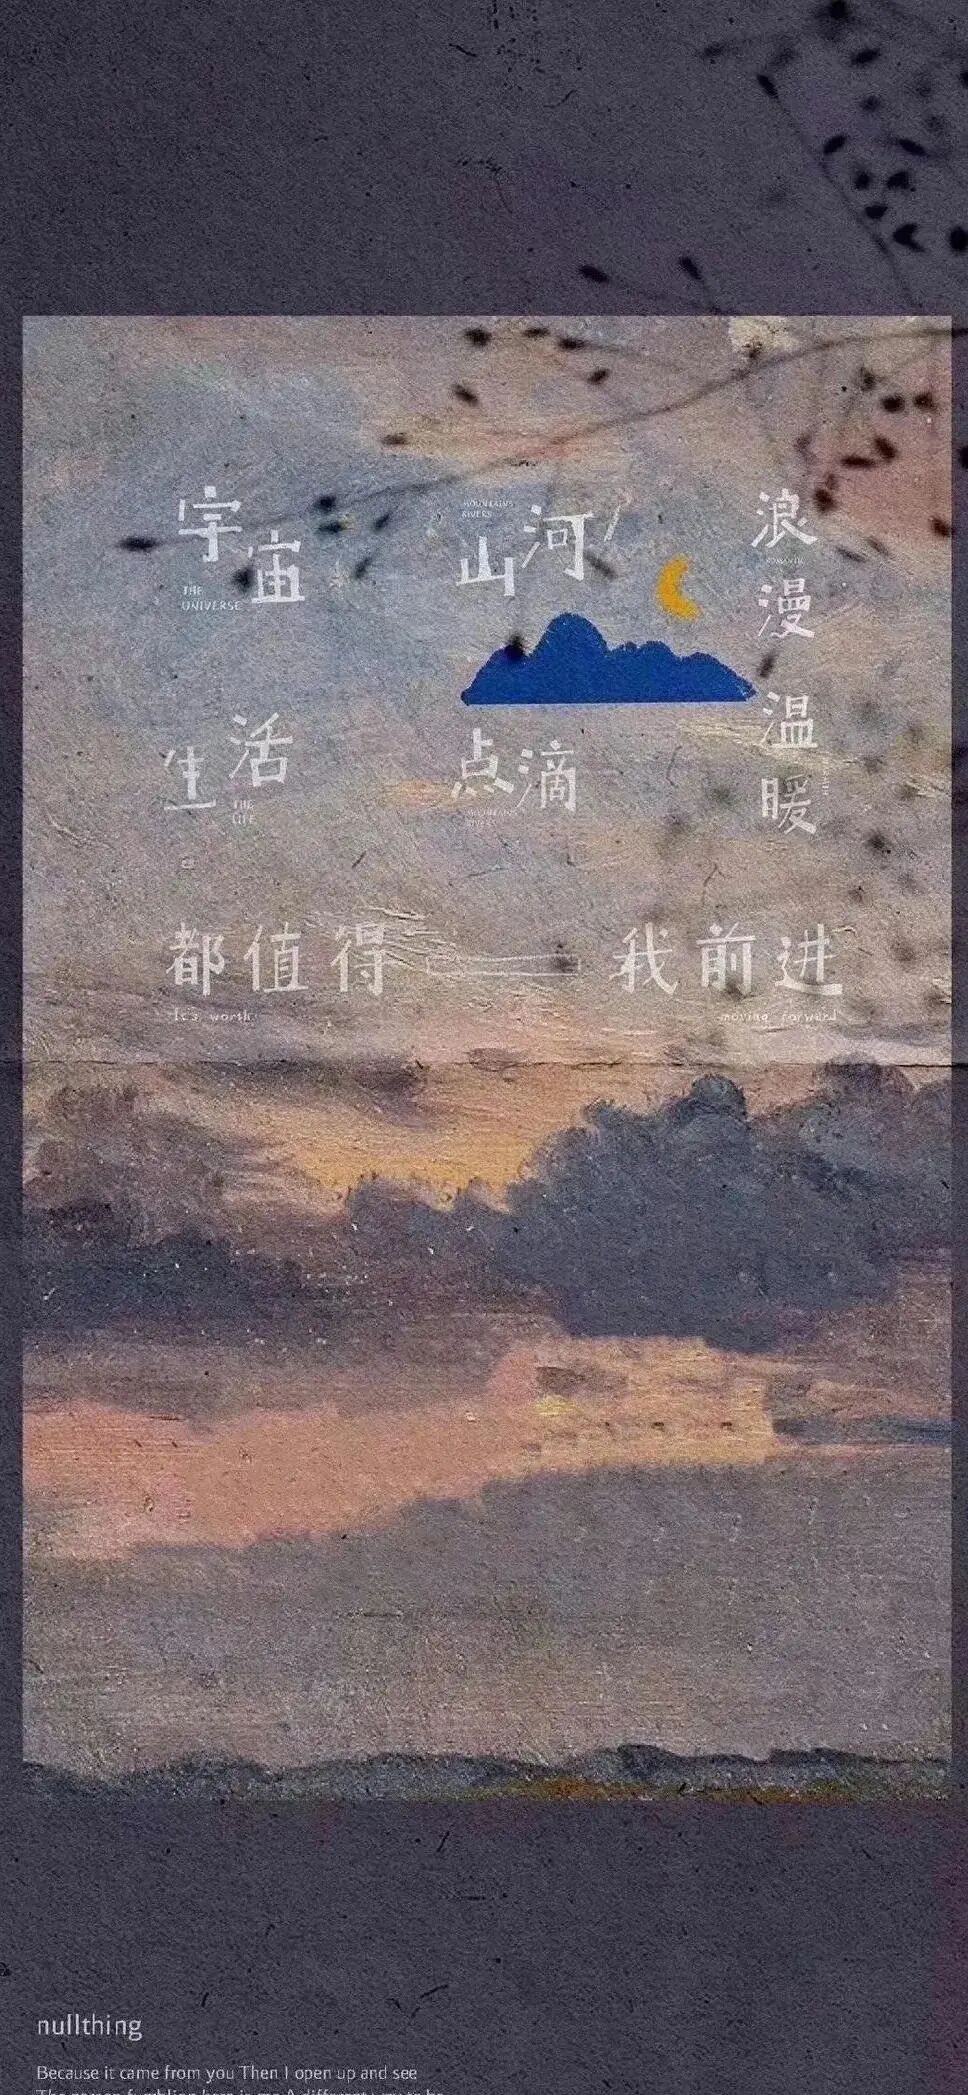 宇宙
THE
UNIVERSE
MOUNTAINS
RIVERS
山河
浪漫
生活
THE
LIFE
点滴
温暖
都值得
我前进
It's worth
moving forward
nullthing
Because it came from you Then I open up and see